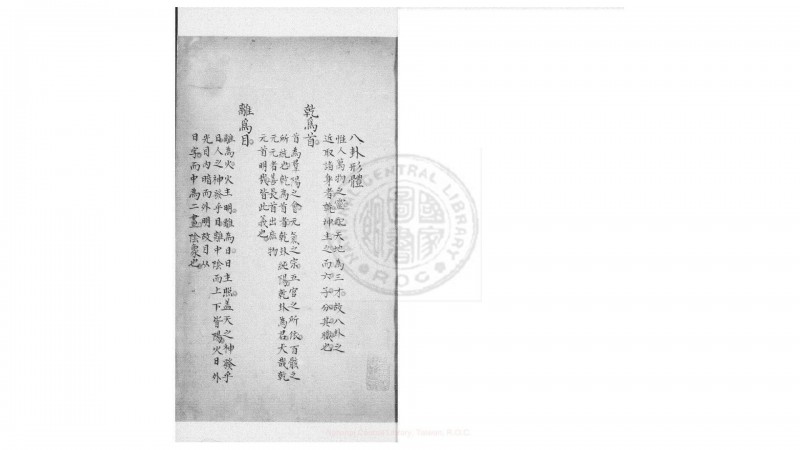 八卦形體
惟人萬物之靈配天地為三才故八卦之
近取諸身者乾坤主之而六子分其職也
乾為首
首為羣陽之會元氣之宗五官之所依百骸之
所統也乾為首者乾卦純陽乾卦為君大哉乾
元元者善長首出庶物
元首明哉皆此義也
離為目
離為火火主明離為日日主照蓋天之神發乎
日人之神發乎目離中陰而上下皆陽火日外
光目內暗而外明故目从
日字而中為二畫陰象也
NATIONAL CENTRAL LIBRARY
R.O.C.
國家圖書館
National Central Library, Taiwan, R.O.C.